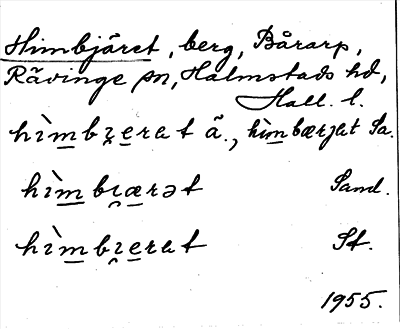 Himbjäret, berg, Bårarp,
Rävinge sn, Halmstads hd,
Hall. l.
hìmbi̯erat ä., hìmbærjat Sa.
hìmbi̯ærət Sand.
hìmbi̯erat St.
1955.